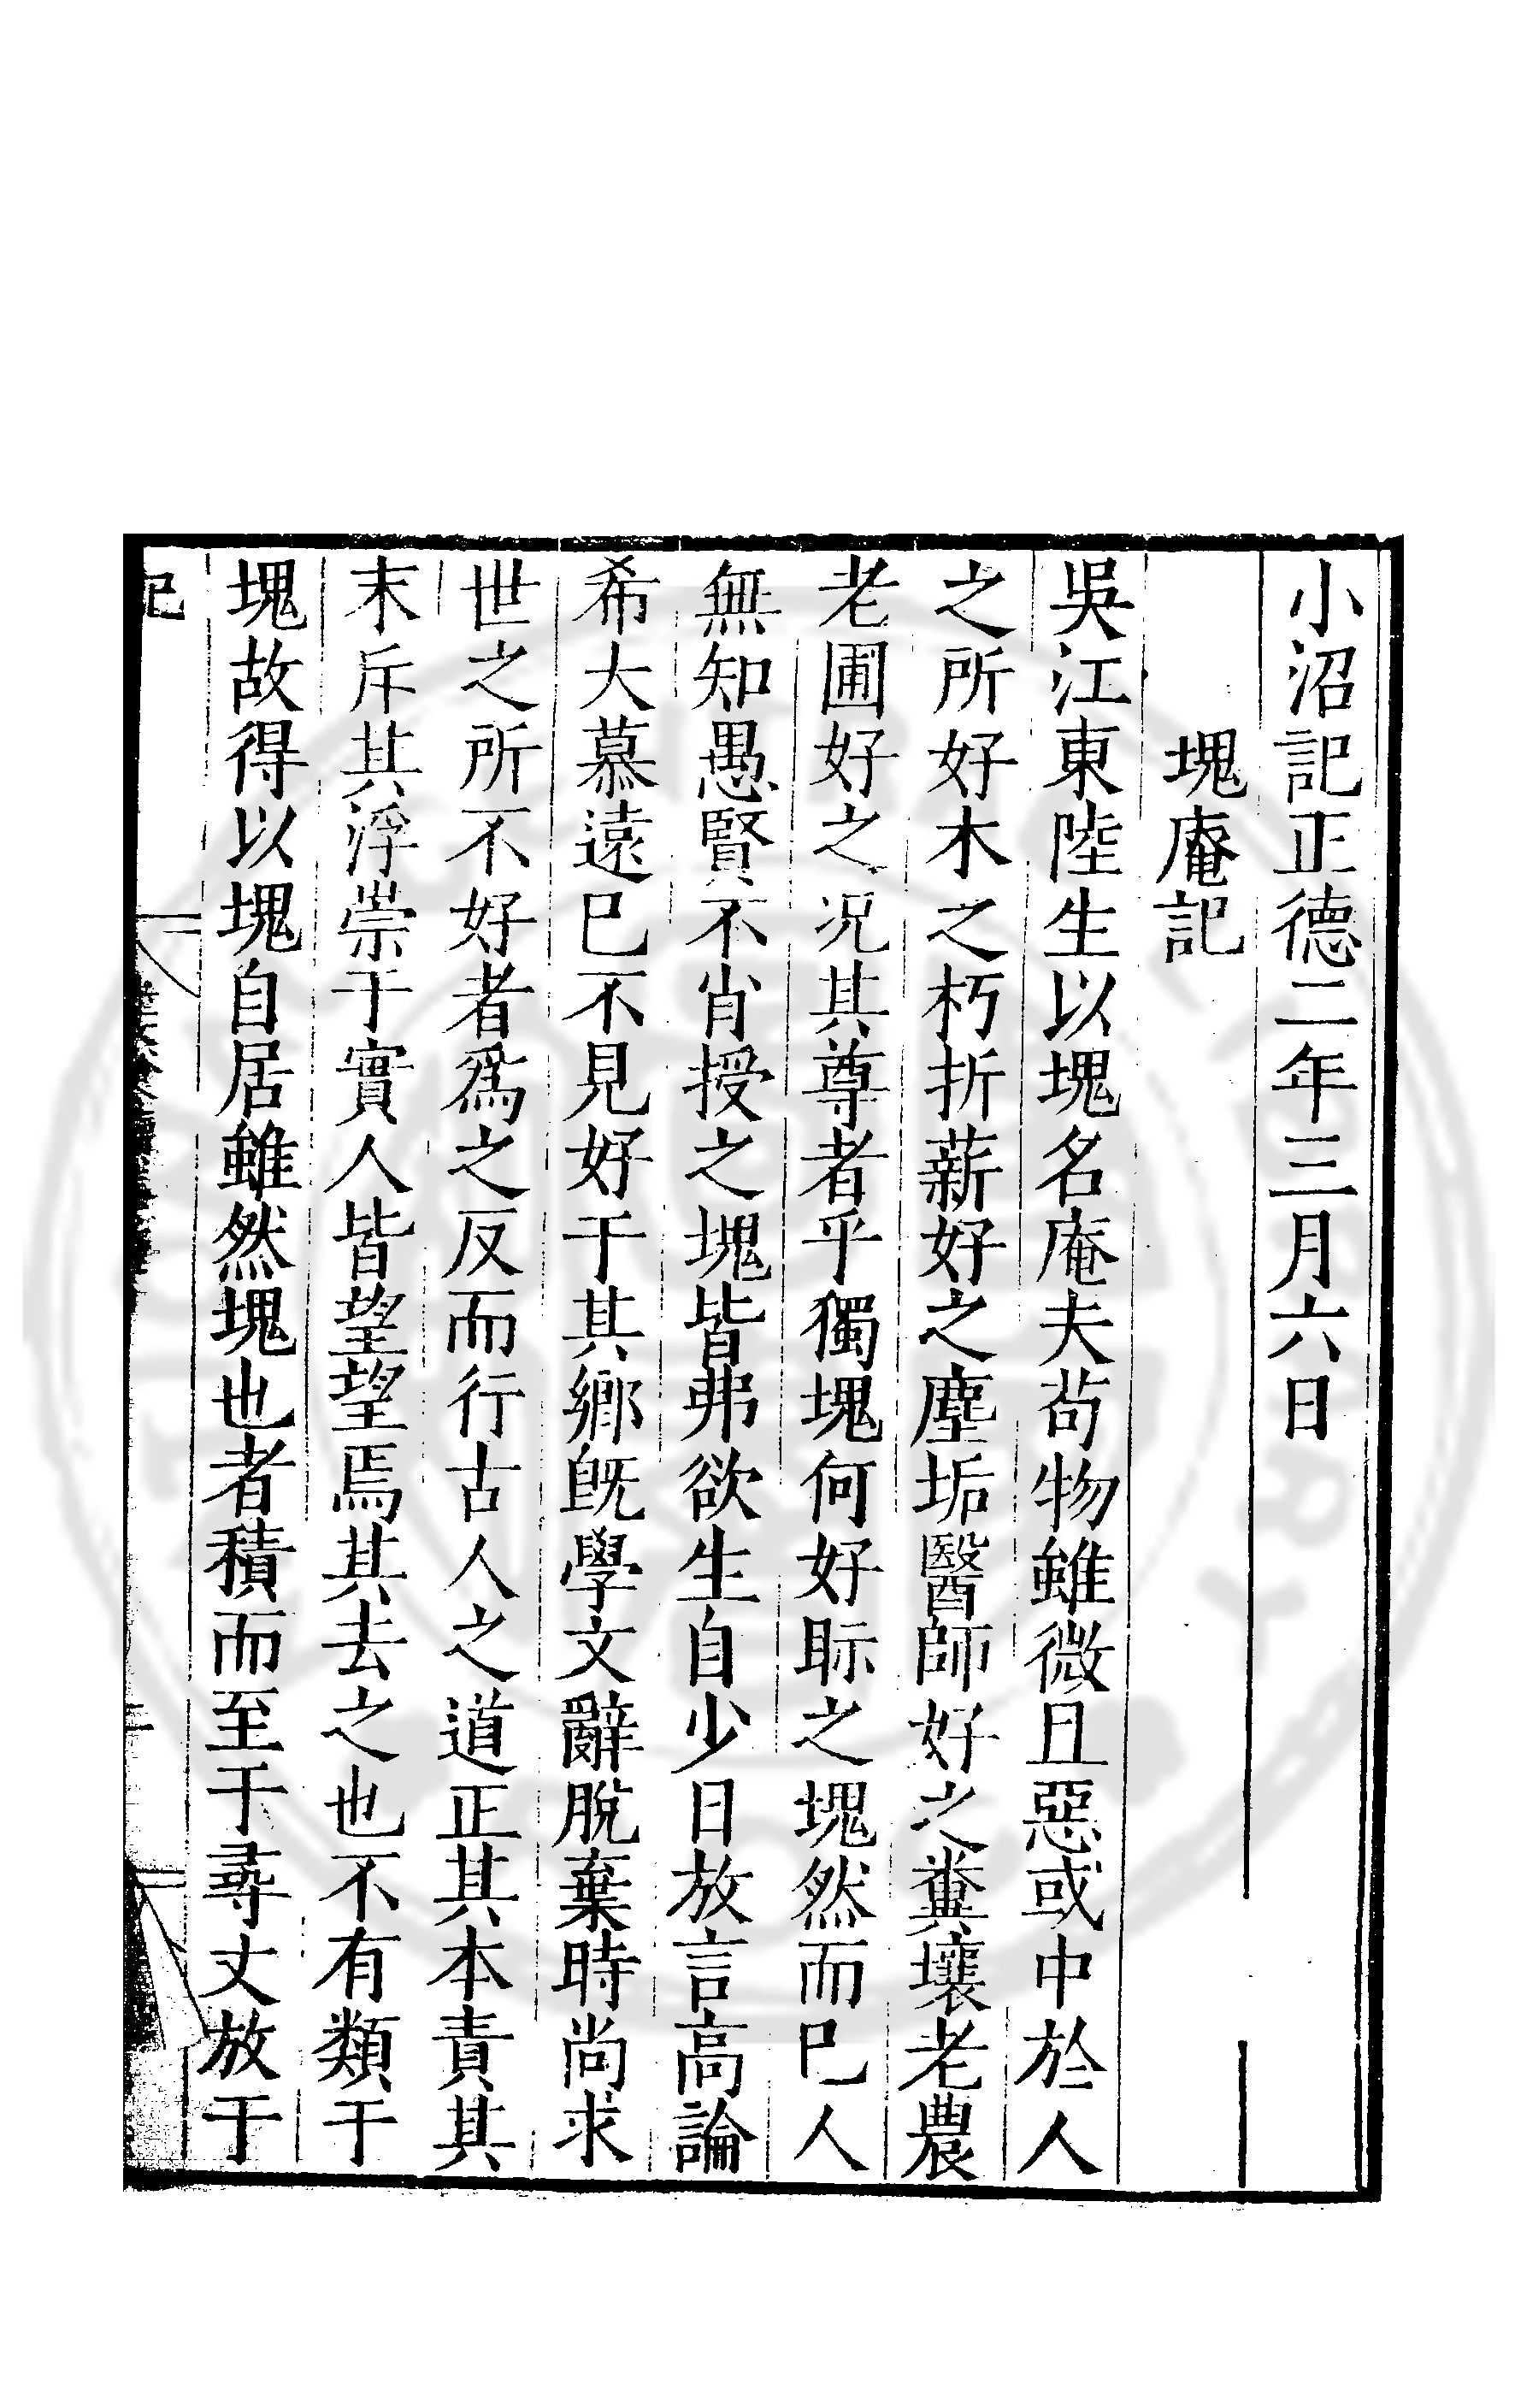 小沼記正德二年三月六日
塊庵記
吳江東陸生以塊名庵夫苟物雖微且惡或中於人
之所好木之朽折薪好之塵垢醫師好之糞壤老農
老圃好之况其尊者乎獨塊何好眎之塊然而已人
無知愚賢不肖授之塊皆弗欲生自少日放言高論
希大慕遠已不見好于其鄉旣學文辭脫棄時尚求
世之所不好者爲之反而行古人之道正其本責其
末斥其浮崇于實人皆望望焉其去之也不有類于
塊故得以塊自居雖然塊也者積而至于尋丈放于